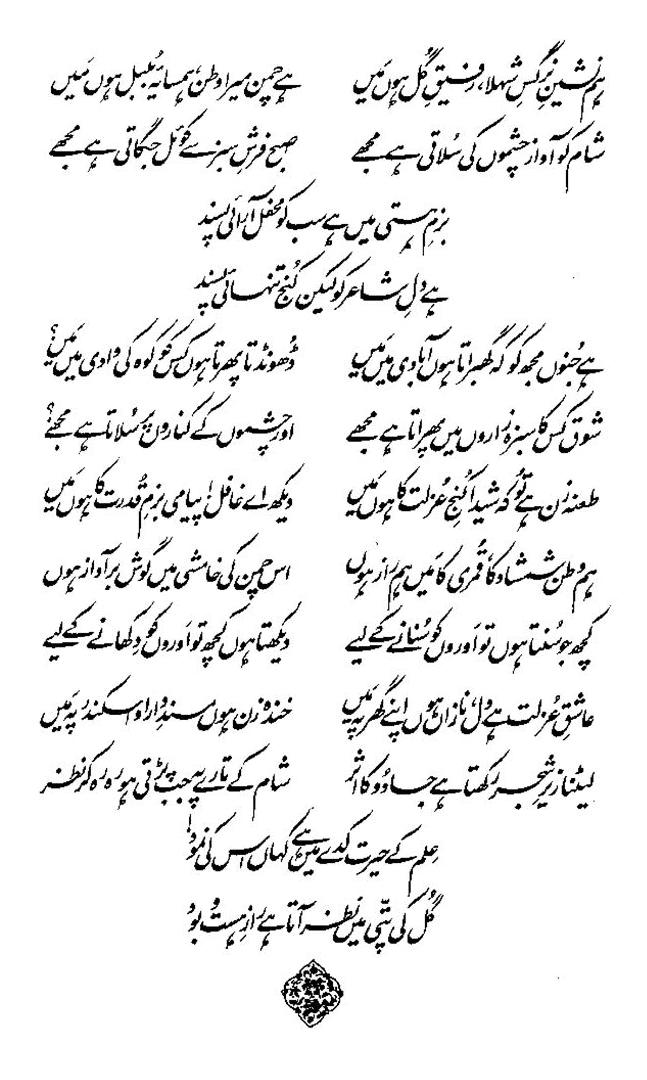 ہم نشینِ نرگسِ شہلا، رفیقِ گُل ہوں مَیں ہے چمن میرا وطن، ہمسایۂ بُلبل ہوں مَیں
شام کو آواز چشموں کی سُلاتی ہے مجھے صبح فرشِ سبز سے کوئل جگاتی ہے مجھے
بزمِ ہستی میں ہے سب کو محفل آرائی پسند
ہے دلِ شاعر کو لیکن کُنجِ تنہائی پسند
ہے جُنوں مجھ کو کہ گھبراتا ہوں آبادی میں مَیں ڈھونڈتا پھرتا ہوں کس کو کوہ کی وادی میں مَیں؟
شوق کس کا سبزہ زاروں میں پھراتا ہے مجھے اور چشموں کے کناروں پر سُلاتا ہے مجھے؟
طعنہ زن ہے تُو کہ شیدا کُنجِ عُزلت کا ہوں مَیں دیکھ اے غافل! پیامی بزمِ قُدرت کا ہوں مَیں
ہم وطن شمشاد کا، قُمری کا مَیں ہم راز ہوں اس چمن کی خامشی میں گوش بر آواز ہوں
کچھ جو سُنتا ہوں تو اَوروں کو سُنانے کے لیے دیکھتا ہوں کچھ تو اَوروں کو دِکھانے کے لیے
عاشقِ عُزلت ہے دل، نازاں ہوں اپنے گھر پہ مَیں خندہ زن ہوں مسندِ دارا و اسکندر پہ مَیں
لیٹنا زیرِ شجر رکھتا ہے جادُو کا اثر شام کے تارے پہ جب پڑتی ہو رہ رہ کر نظر
عِلم کے حیرت کدے میں ہے کہاں اس کی نمود!
گُل کی پتّی میں نظر آتا ہے رازِ ہست و بود